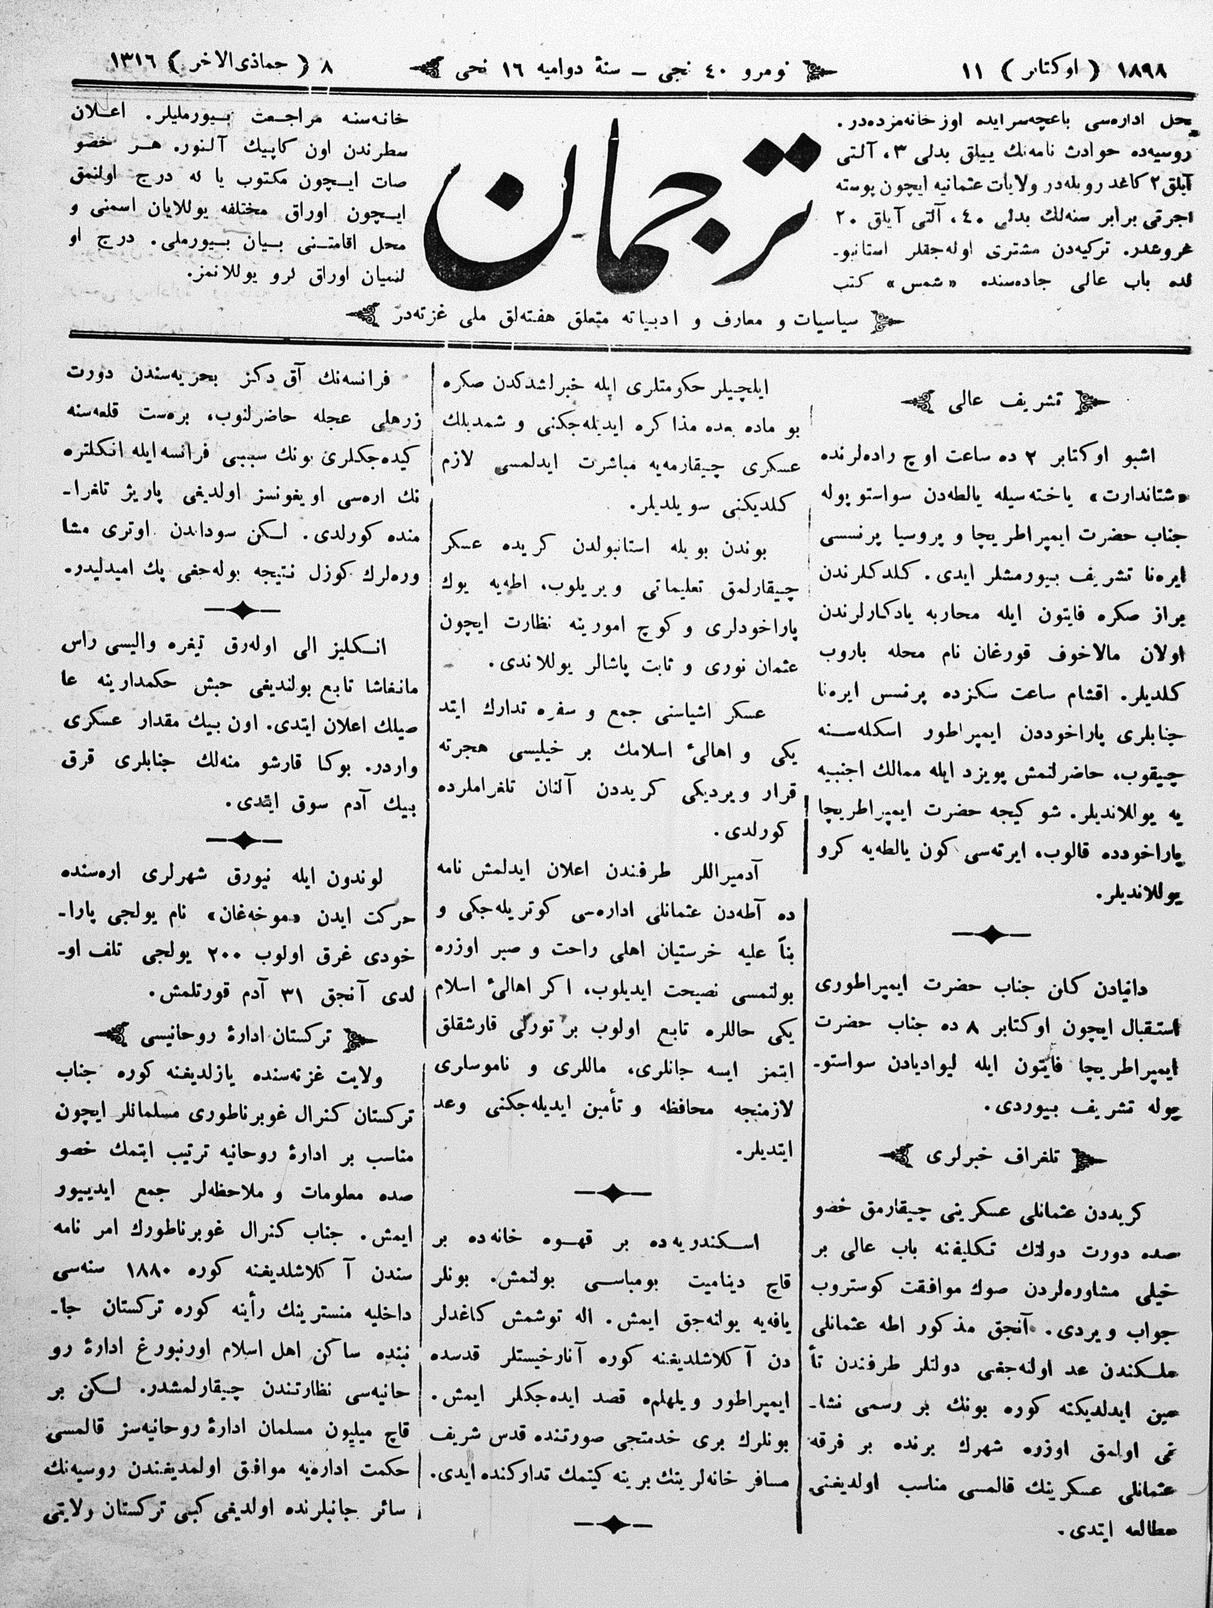 ۱۸۹۸ ( اوکتابر ) ۱۱
نومرو ۴۰ نجی ـ سنهٔ دوامیه ۱۶ نجی
۸ ( جماذی‌الاخر ) ۱۳۱٦
محل اداره‌سی باغچه‌سرایده اوز خانه‌مزده‌در.
روسیه‌ده حوادث نامه‌نك ییلق بدلی ۳، آلتی
آیلق ۲ کاغد روبله‌در ولایات عثمانیه ایچون پوسته
اجرتی برابر سنه‌لك بدلی ۴۰، آلتی آیلق ۲۰
غروشدر. ترکیه‌دن مشتری اوله‌جقلر استانبو‌ـ
لده باب عالی جاده‌سنده «شمس» کتب
ترجمان
خانه‌سنه مراجعت بیورملیلر. اعلان
سطرندن اون کاپیك آلنور. هر خصو
صات ایچون مکتوب یا له درج اولنمق
ایچون اوراق مختلفه یوللایان اسمنی و
محل اقامتنی بیان بیورملی. درج او
لنمیان اوراق کرو یوللانمز.
سیاسیات و معارف و ادبیاته متعلق هفته‌لق ملی غزته‌در
تشریف عالی
اشبو اوکتابر ۲ ده ساعت اوچ راده‌لرنده
«شتاندارت» یاخته‌سیله یالطه‌دن سواستو پوله
جناب حضرت ایمپراطریچا و پروسیا پرنسسی
ایره‌نا تشریف بیورمشلر ایدی. کلدکلرندن
براز صکره فایتون ایله محاربه یادکارلرندن
اولان مالاخوف قورغان نام محله باروب
کلدیلر. اقشام ساعت سکزده پرنسس ایره‌نا
جنابلری پاراخوددن ایمپراطور اسکله‌سنه
چیقوب، حاضرلنمش پویزد ایله ممالك اجنبیه
یه یوللاندیلر. شو کیجه حضرت ایمپراطریچا
پاراخودده قالوب، ایرته‌سی کون یالطه‌یه کرو
یوللاندیلر.
دانیادن کلن جناب حضرت ایمپراطوری
استقبال ایچون اوکتابر ۸ ده جناب حضرت
ایمپراطریچا فایتون ایله لیوادیادن سواستو‌ـ
پوله تشریف بیوردی.
تلغراف خبرلری
کریددن عثمانلی عسکرینی چیقارمق خصو
صده دورت دولتك تکلیفنه باب عالی بر
خیلی مشاوره‌لردن صوك موافقت کوستروب
جواب ویردی. آنجق مذکور اطه عثمانلی
ملکندن عد اولنه‌جغی دولتلر طرفندن تأ
مین ایدلدیکنه کوره بونك بر رسمی نشا‌ـ
نی اولمق اوزره شهرك برنده بر فرقه
عثمانلی عسکرینك قالمسی مناسب اولدیغنی
مطالعه ایتدی.
ایلچیلر حکومتلری ایله خبرلشدکدن صکره
بو ماده بعده مذاکره ایدیله‌جکنی و شمدیلك
عسکری چیقارمه‌یه مباشرت ایدلمسی لازم
کلدیکنی سویلدیلر.
بوندن بویله استانبولدن کریده عسکر
چیقارلمق تعلیماتی ویریلوب، اطه‌یه یوك
پاراخودلری و کوچ امورینه نظارت ایچون
عثمان نوری و ثابت پاشالر یوللاندی.
عسکر اشیاسنی جمع و سفره تدارك ایتد
یکی و اهالیٔ اسلامك بر خیلیسی هجرته
قرار ویردیکی کریددن آلنان تلغراملرده
کورلدی.
آدمیراللر طرفندن اعلان ایدلمش نامه
ده آطه‌دن عثمانلی اداره‌سی کوتریله‌جکی و
بناً علیه خرستیان اهلی راحت و صبر اوزره
بولنمسی نصیحت ایدیلوب، اکر اهالیٔ اسلام
یکی حاللره تابع اولوب بر تورلی قارشقلق
ایتمز ایسه جانلری، ماللری و ناموسلری
لازمنجه محافظه و تأمین ایدیله‌جکنی وعد
ایتدیلر.
اسکندریه‌ده بر قهوه خانه‌ده بر
قاچ دینامیت بومباسی بولنمش. بونلر
یافه‌یه یولنه‌جق ایمش. اله توشمش کاغدلر
دن آکلاشلدیغنه کوره آنارخیستلر قدسده
ایمپراطور ویلهلمه قصد ایده‌جکلر ایمش.
بونلرك بری خدمتجی صورتنده قدس شریف
مسافر خانه‌لرینك برینه کیتمك تدارکنده ایدی.
فرانسه‌نك آق دکز بحریه‌سندن دورت
زرهلی عجله حاضرلنوب، بره‌ست قلعه‌سنه
کیده‌جکلری بونك سببی فرانسه ایله انکلتره
نك اره‌سی اویغونسز اولدیغی پاریژ تلغرا‌ـ
منده کورلدی. لکن سوداندن اوتری مشا
وره‌لرك کوزل نتیجه بوله‌جغی پك امیدلیدر.
انکلیز الی اوله‌رق تیغره والیسی راس
مانغاشا تابع بولندیغی حبش حکمدارینه عا
صیلك اعلان ایتدی. اون بیك مقدار عسکری
واردر. بوکا قارشو منه‌لك جنابلری قرق
بیك آدم سوق ایتدی.
لوندون ایله نیورق شهرلری اره‌سنده
حرکت ایدن «موخه‌غان» نام یولجی پارا‌ـ
خودی غرق اولوب ۲۰۰ یولجی تلف او‌ـ
لدی آنجق ۳۱ آدم قورتلمش.
ترکستان ادارهٔ روحانیسی
ولایت غزته‌سنده یازلدیغنه کوره جناب
ترکستان کنرال غوبرناطوری مسلمانلر ایچون
مناسب بر ادارهٔ روحانیه ترتیب ایتمك خصو
صده معلومات و ملاحظه‌لر جمع ایدییور
ایمش. جناب کنرال غوبرناطورك امر نامه
سندن آکلاشلدیغنه کوره ۱۸۸۰ سنه‌سی
داخلیه منسترینك رأینه کوره ترکستان جا‌ـ
نبنده ساکن اهل اسلام اورنبورغ ادارهٔ رو
حانیه‌سی نظارتندن چیقارلمشدر. لکن بر
قاچ میلیون مسلمان ادارهٔ روحانیه‌سز قالمسی
حکمت اداره‌یه موافق اولمدیغندن روسیه‌نك
سائر جانبلرنده اولدیغی کبی ترکستان ولایتی